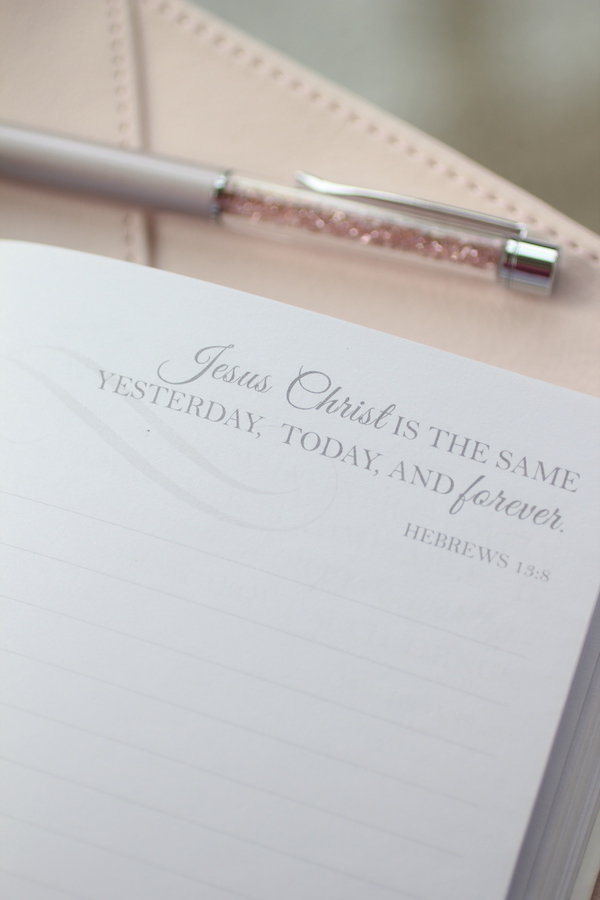 Jesus Christ IS THE SAME
YESTERDAY, TODAY, AND forever.
HEBREWS 13:8